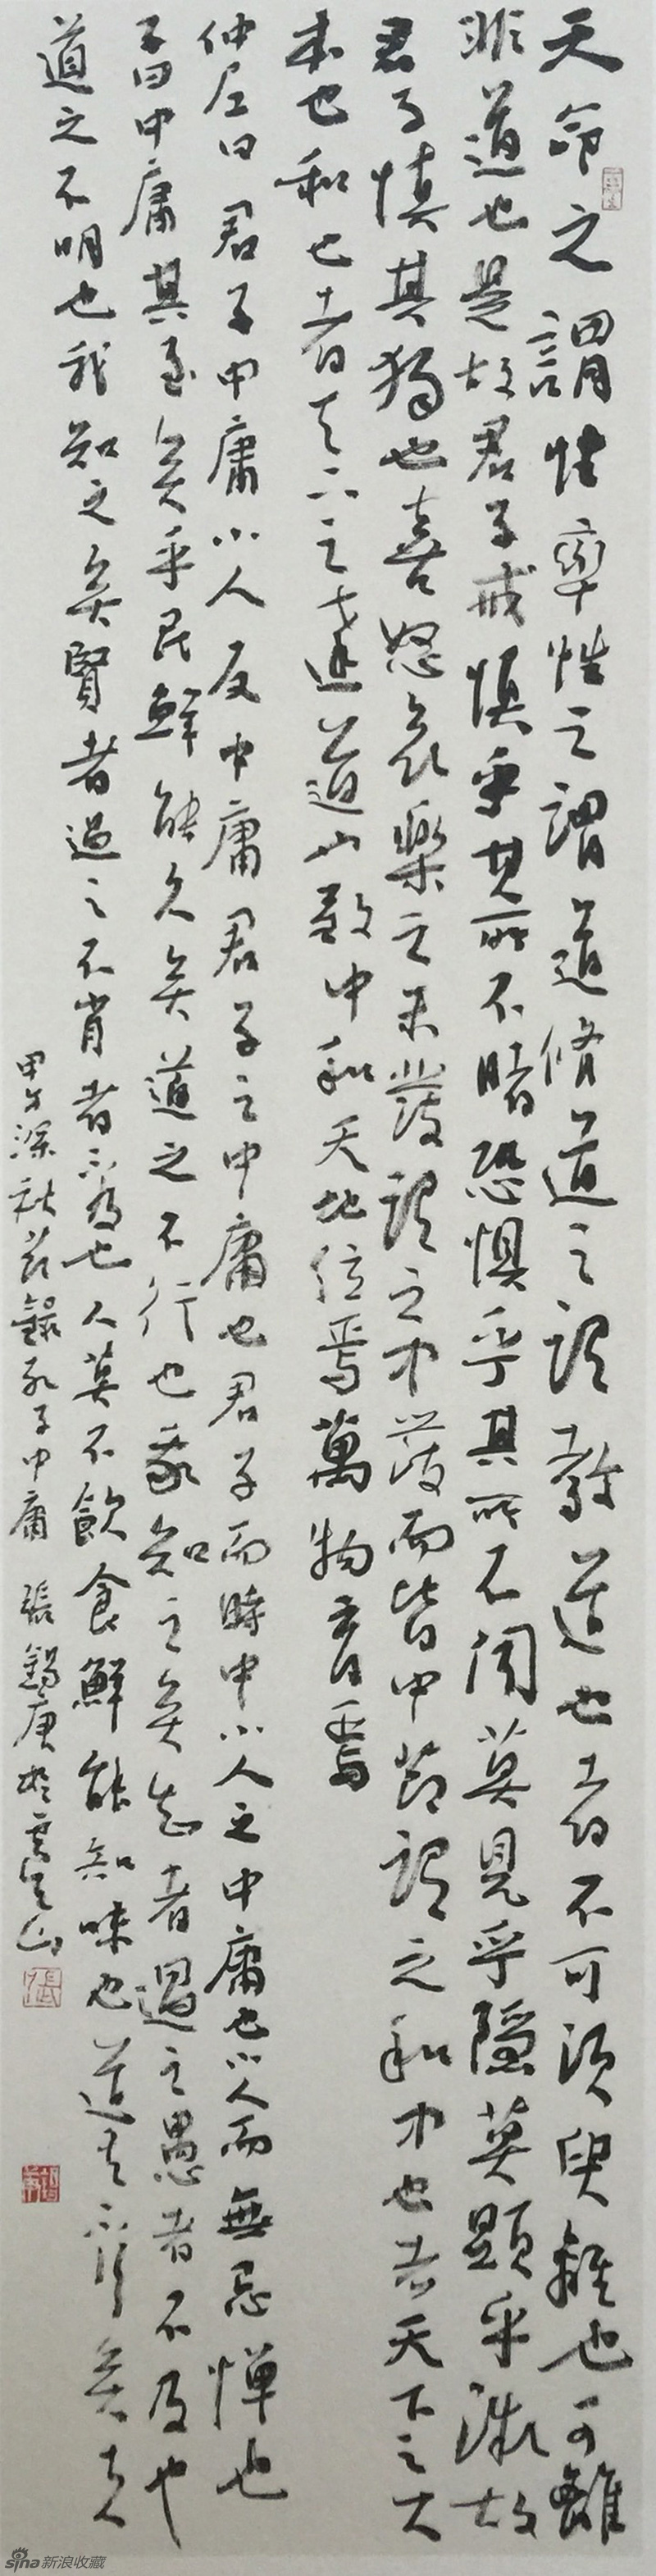 天命之謂性率性之謂道修道之謂教道也者不可須臾離也可離
非道也是故君子戒慎乎其所不睹恐懼乎其所不聞莫見乎隱莫顯乎微故
君子慎其獨也喜怒哀樂之未發謂之中發而皆中節謂之和中也者天下之大
本也和也者天下之達道道也致中和天地位焉萬物育焉
仲尼曰君子中庸小人反中庸君子之中庸也君子而時中小人之中庸也小人而無忌憚也
子曰中庸其至矣乎民鮮能久矣道之不行也我知之矣知者過之愚者不及也
道之不明也我知之矣賢者過之不肖者不及也人莫不飲食鮮能知味也道其不行矣夫
甲午深秋節錄孔子中庸 張錫庚於雲龍山
張
sina新浪收藏